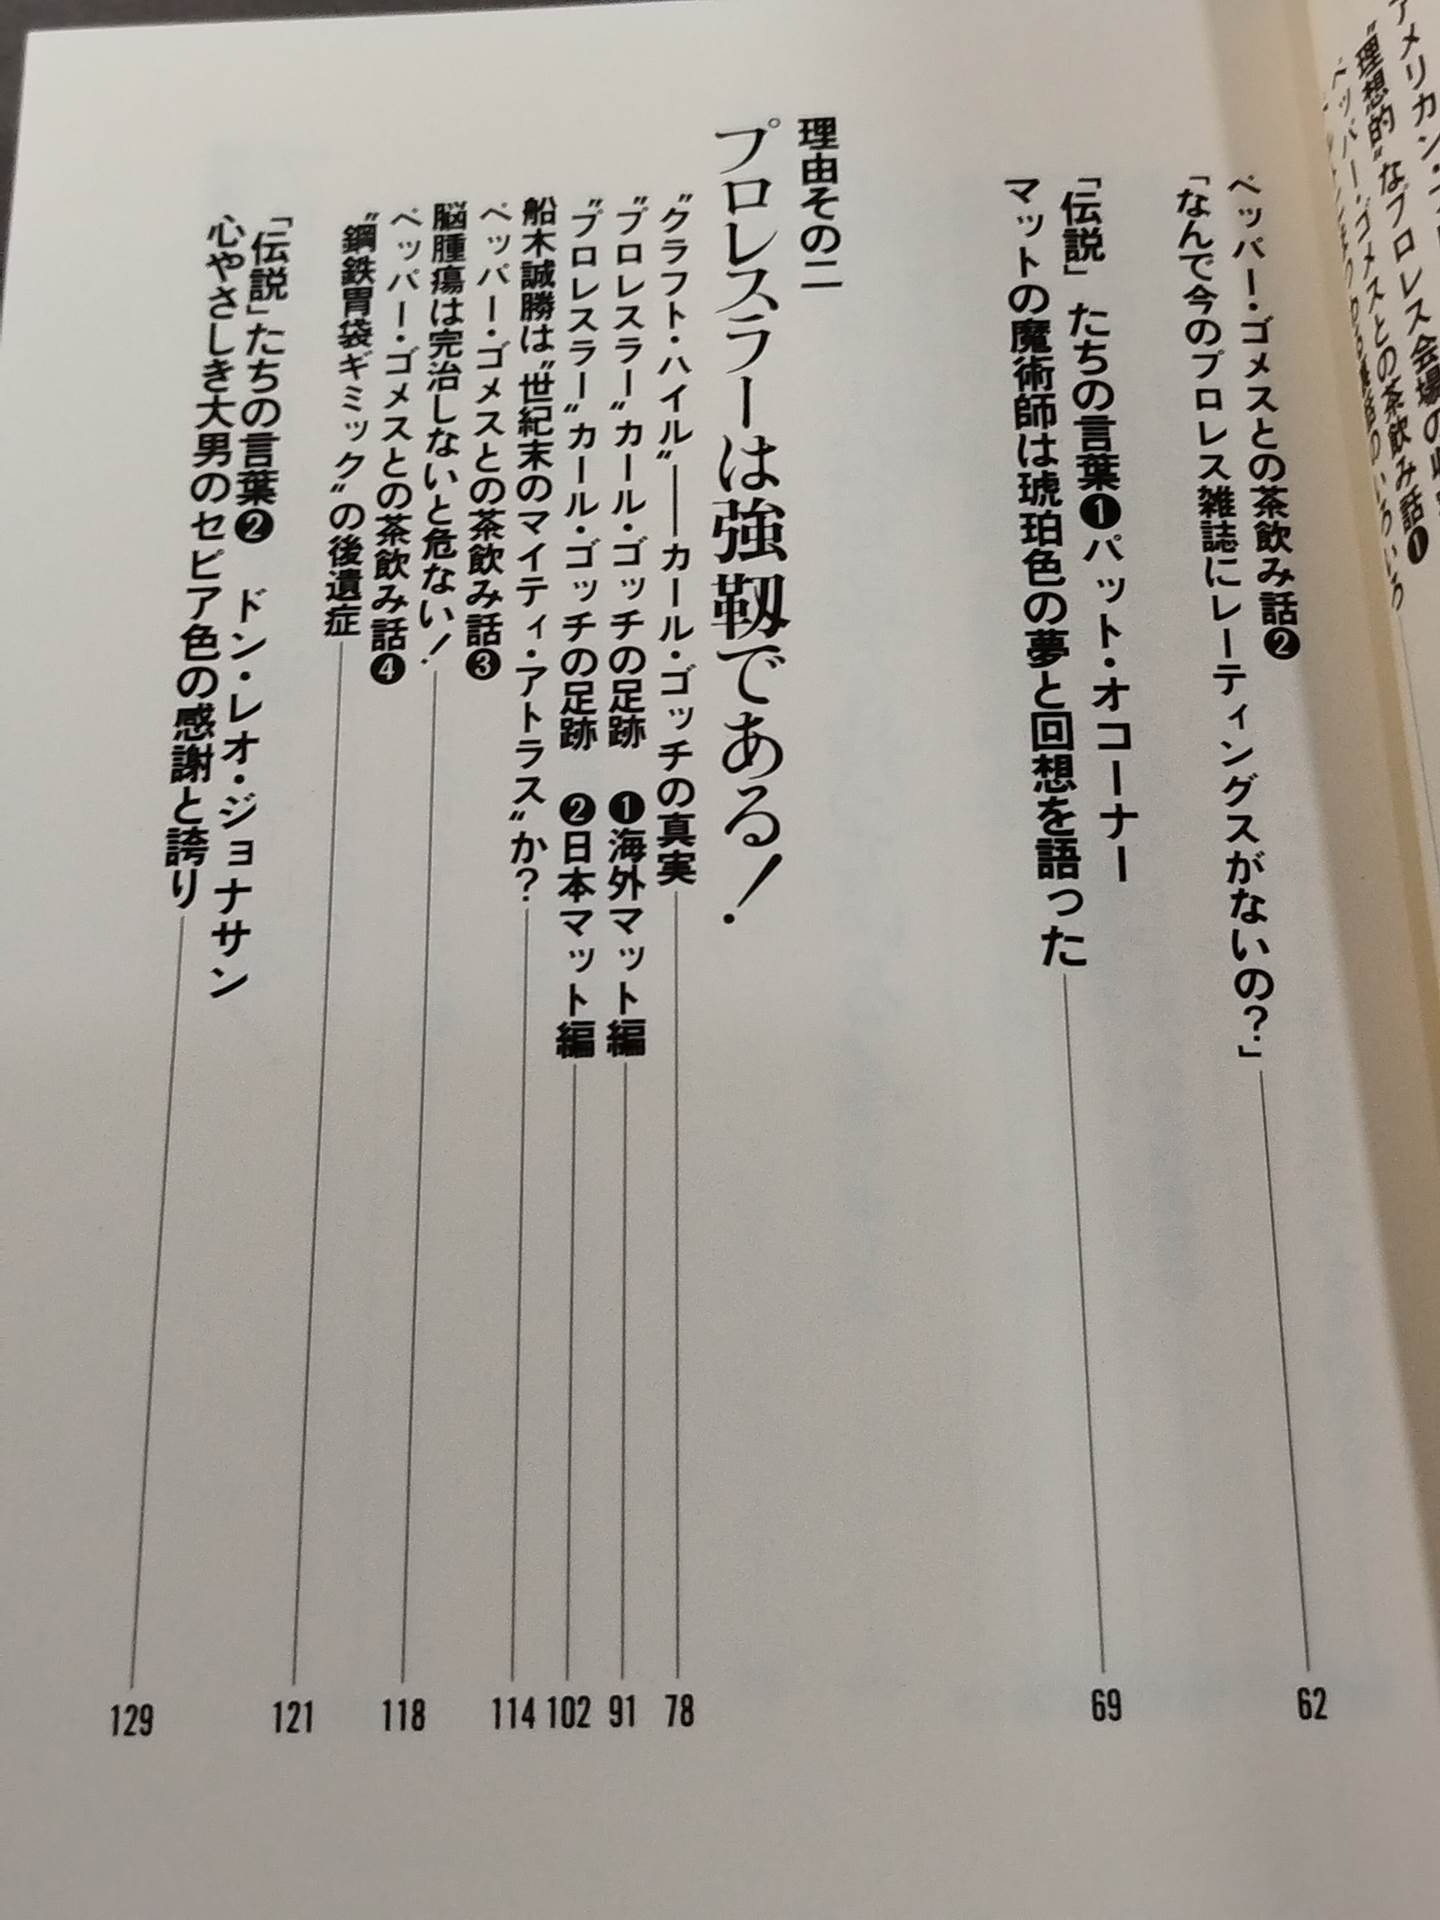 ペッパー・ゴメスとの茶飲み話❶
ペッパー・ゴメスとの茶飲み話❷
「なんで今のプロレス雑誌にレーティングスがないの？」
62
「伝説」たちの言葉❶パット・オコーナー
マットの魔術師は琥珀色の夢と回想を語った
69
理由その二
プロレスラーは強靱である！
〝クラフト・ハイル〟――カール・ゴッチの真実
78
〝プロレスラー〟カール・ゴッチの足跡　❶海外マット編
91
〝プロレスラー〟カール・ゴッチの足跡　❷日本マット編
102
船木誠勝は〝世紀末のマイティ・アトラス〟か？
114
ペッパー・ゴメスとの茶飲み話❸
脳腫瘍は完治しないと危ない！
118
ペッパー・ゴメスとの茶飲み話❹
〝鋼鉄胃袋ギミック〟の後遺症
121
「伝説」たちの言葉❷　ドン・レオ・ジョナサン
心やさしき大男のセピア色の感謝と誇り
129